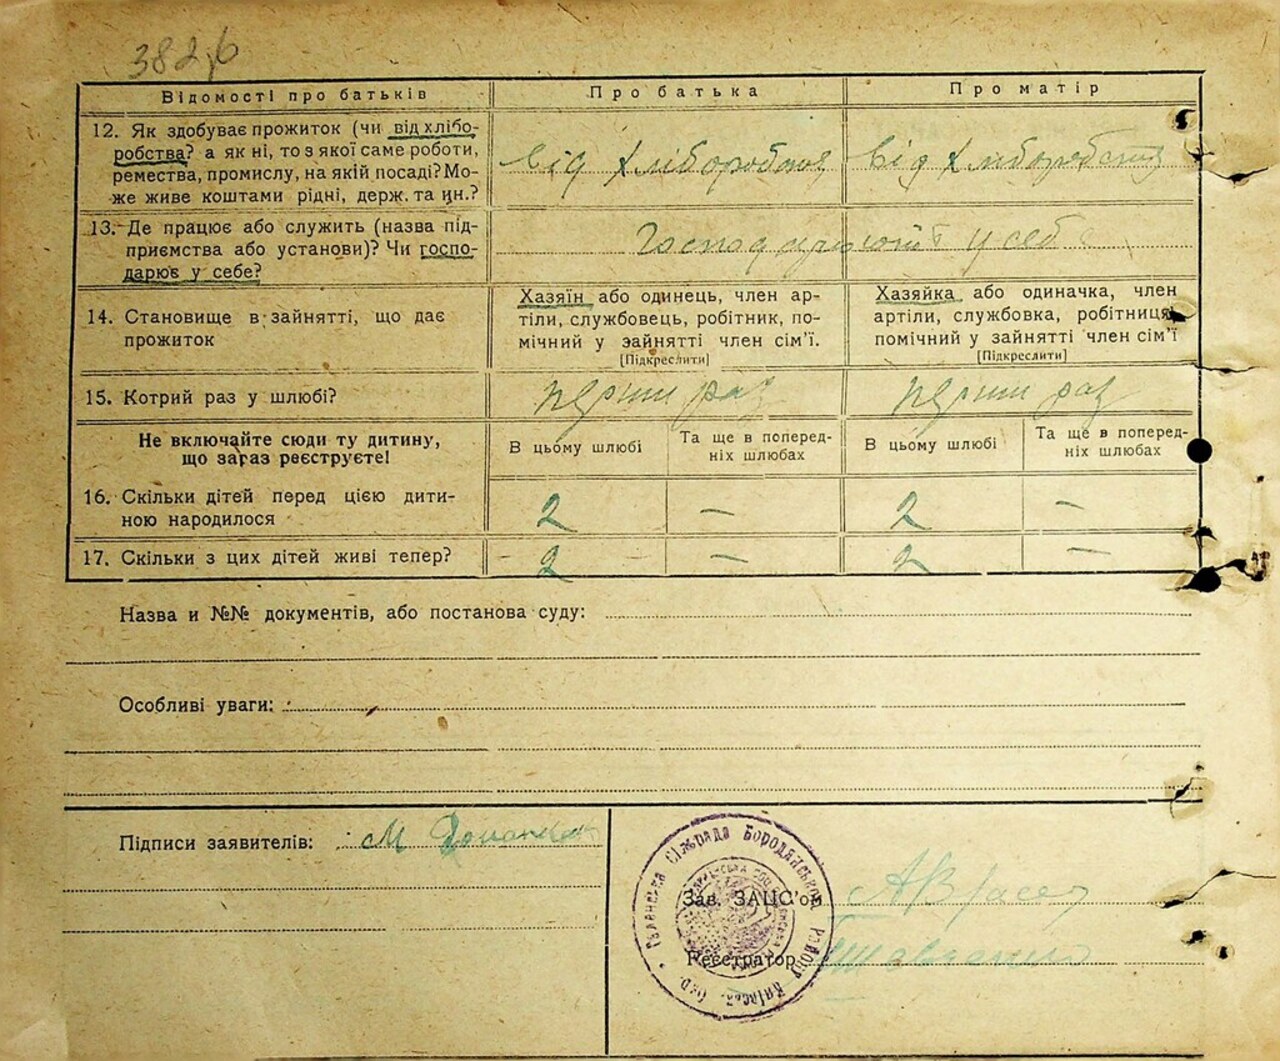 382,б
Відомості про батьків
Про батька
Про матір
12. Як здобуває прожиток (чи від хлібо-
робства? а як ні, то з якої саме роботи,
ремества, промислу, на якій посаді? Мо-
же живе коштами рідні, держ. та ин.?
від хліборобства
від хліборобства
13. Де працює або служить (назва під-
приємства або установи)? Чи госпо-
дарює у себе?
Господарюють у себе
14. Становище в зайнятті, що дає
прожиток
Хазяїн або одинець, член ар-
тіли, службовець, робітник, по-
мічний у зайнятті член сім'ї.
[Підкреслити]
Хазяйка або одиначка, член
артіли, службовка, робітниця,
помічний у зайнятті член сім'ї
[Підкреслити]
15. Котрий раз у шлюбі?
перши раз
перши раз
Не включайте сюди ту дитину,
що зараз реєструєте!
В цьому шлюбі
Та ще в поперед-
ніх шлюбах
В цьому шлюбі
Та ще в поперед-
ніх шлюбах
16. Скільки дітей перед цією дити-
ною народилося
2 – 2 –
17. Скільки з цих дітей живі тепер?
2 – 2 –
Назва и №№ документів, або постанова суду:
Особливі уваги:
Підписи заявителів: М
Зав. ЗАЦС'ом
Реєстратор
Сільрада Бородянського району Київськ. Окр.